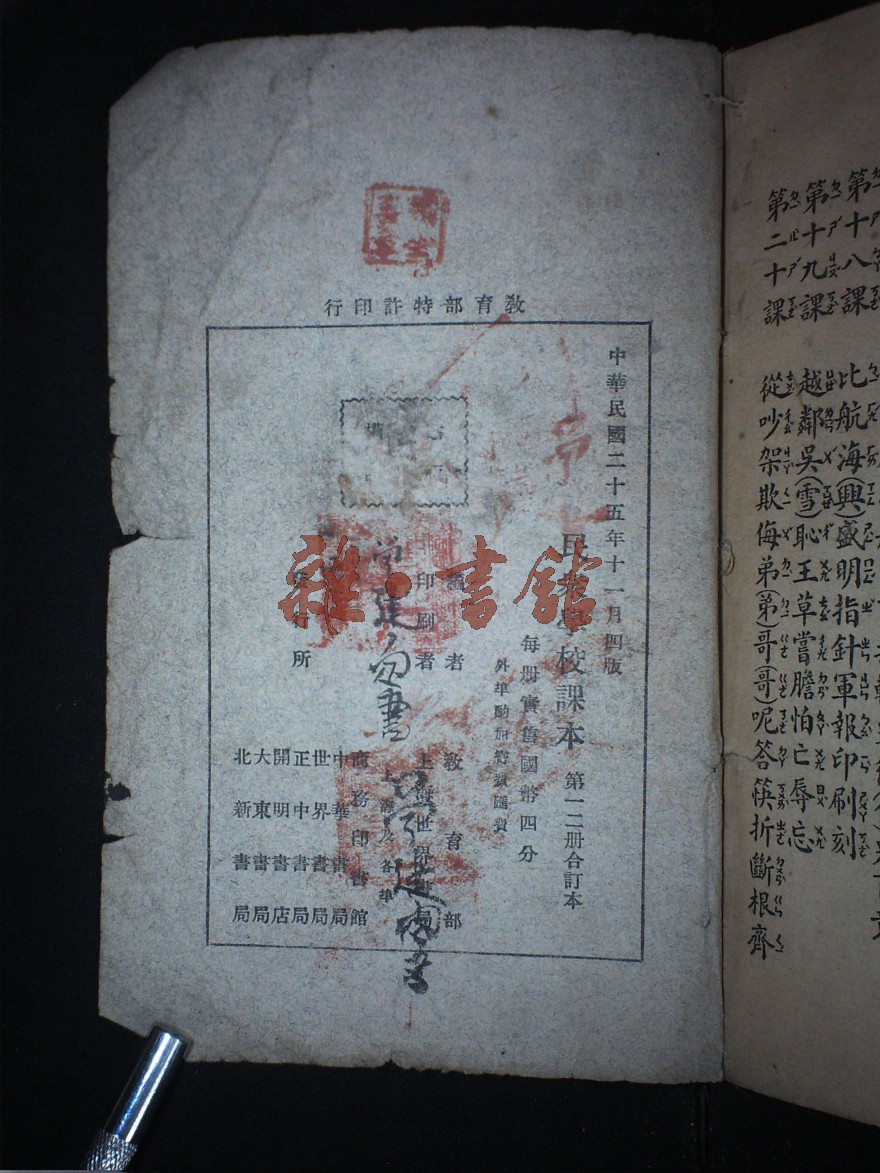 教育部特許印行
中華民國二十五年十一月四版
民衆學校課本 第一二册合訂本
每册實售國幣四分
外埠酌加寄費匯費
者 教育部
印刷者 上海世界書局
發行所
上海及各埠
商務印書館
中華書局
世界書局
正中書局
開明書店
大東書局
北新書局
雜·書館
第十八課 比航海(興)盛明指針軍報印刷刻
第十九課 越鄰吳(雪)恥王草嘗膽怕亡辱忘
第二十課 從吵架欺侮弟(弟)哥(哥)呢答筷折斷根齊